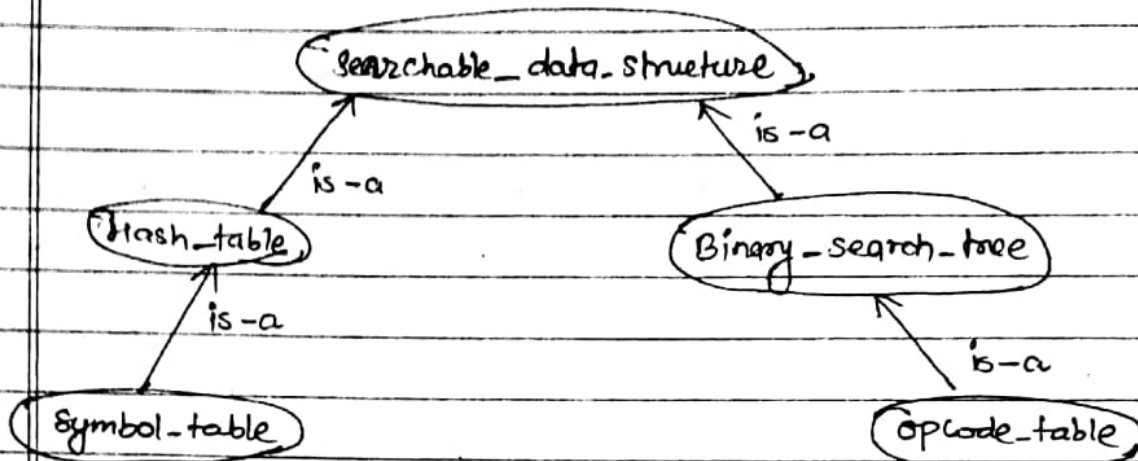 Searchable_data_structure
is-a
is-a
Hash_table
Binary_search_tree
is-a
is-a
Symbol_table
opcode_table